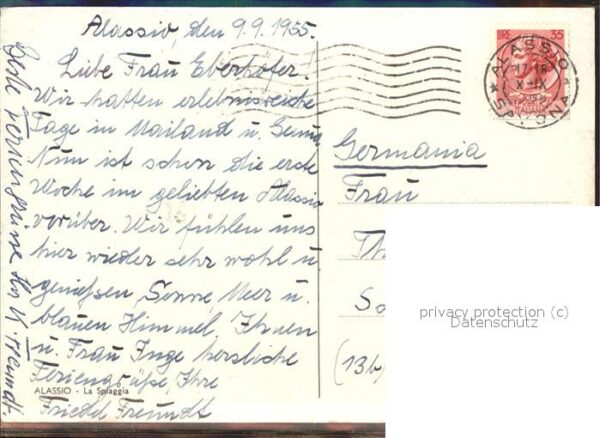 Alassio, den 9.9.1955.
Liebe Frau Eberhöfer!
Wir hatten erlebnisreiche
Tage in Mailand u. Genua
Nun ist schon die erste
Woche im geliebten Alassio
vorüber. Wir fühlen uns
hier wieder sehr wohl u
genießen Sonne, Meer u.
blauen Himmel. Ihnen
u. Frau Inge herzliche
Feriengrüße, Ihre
Friedel Freundt
Beste Feriengrüsse Ihr
ALASSIO - La Spiaggia
LIRE 35
ALASSIO
SAVONA
Germania
Frau
Th
So
(13b)
privacy protection (c)
Datenschutz